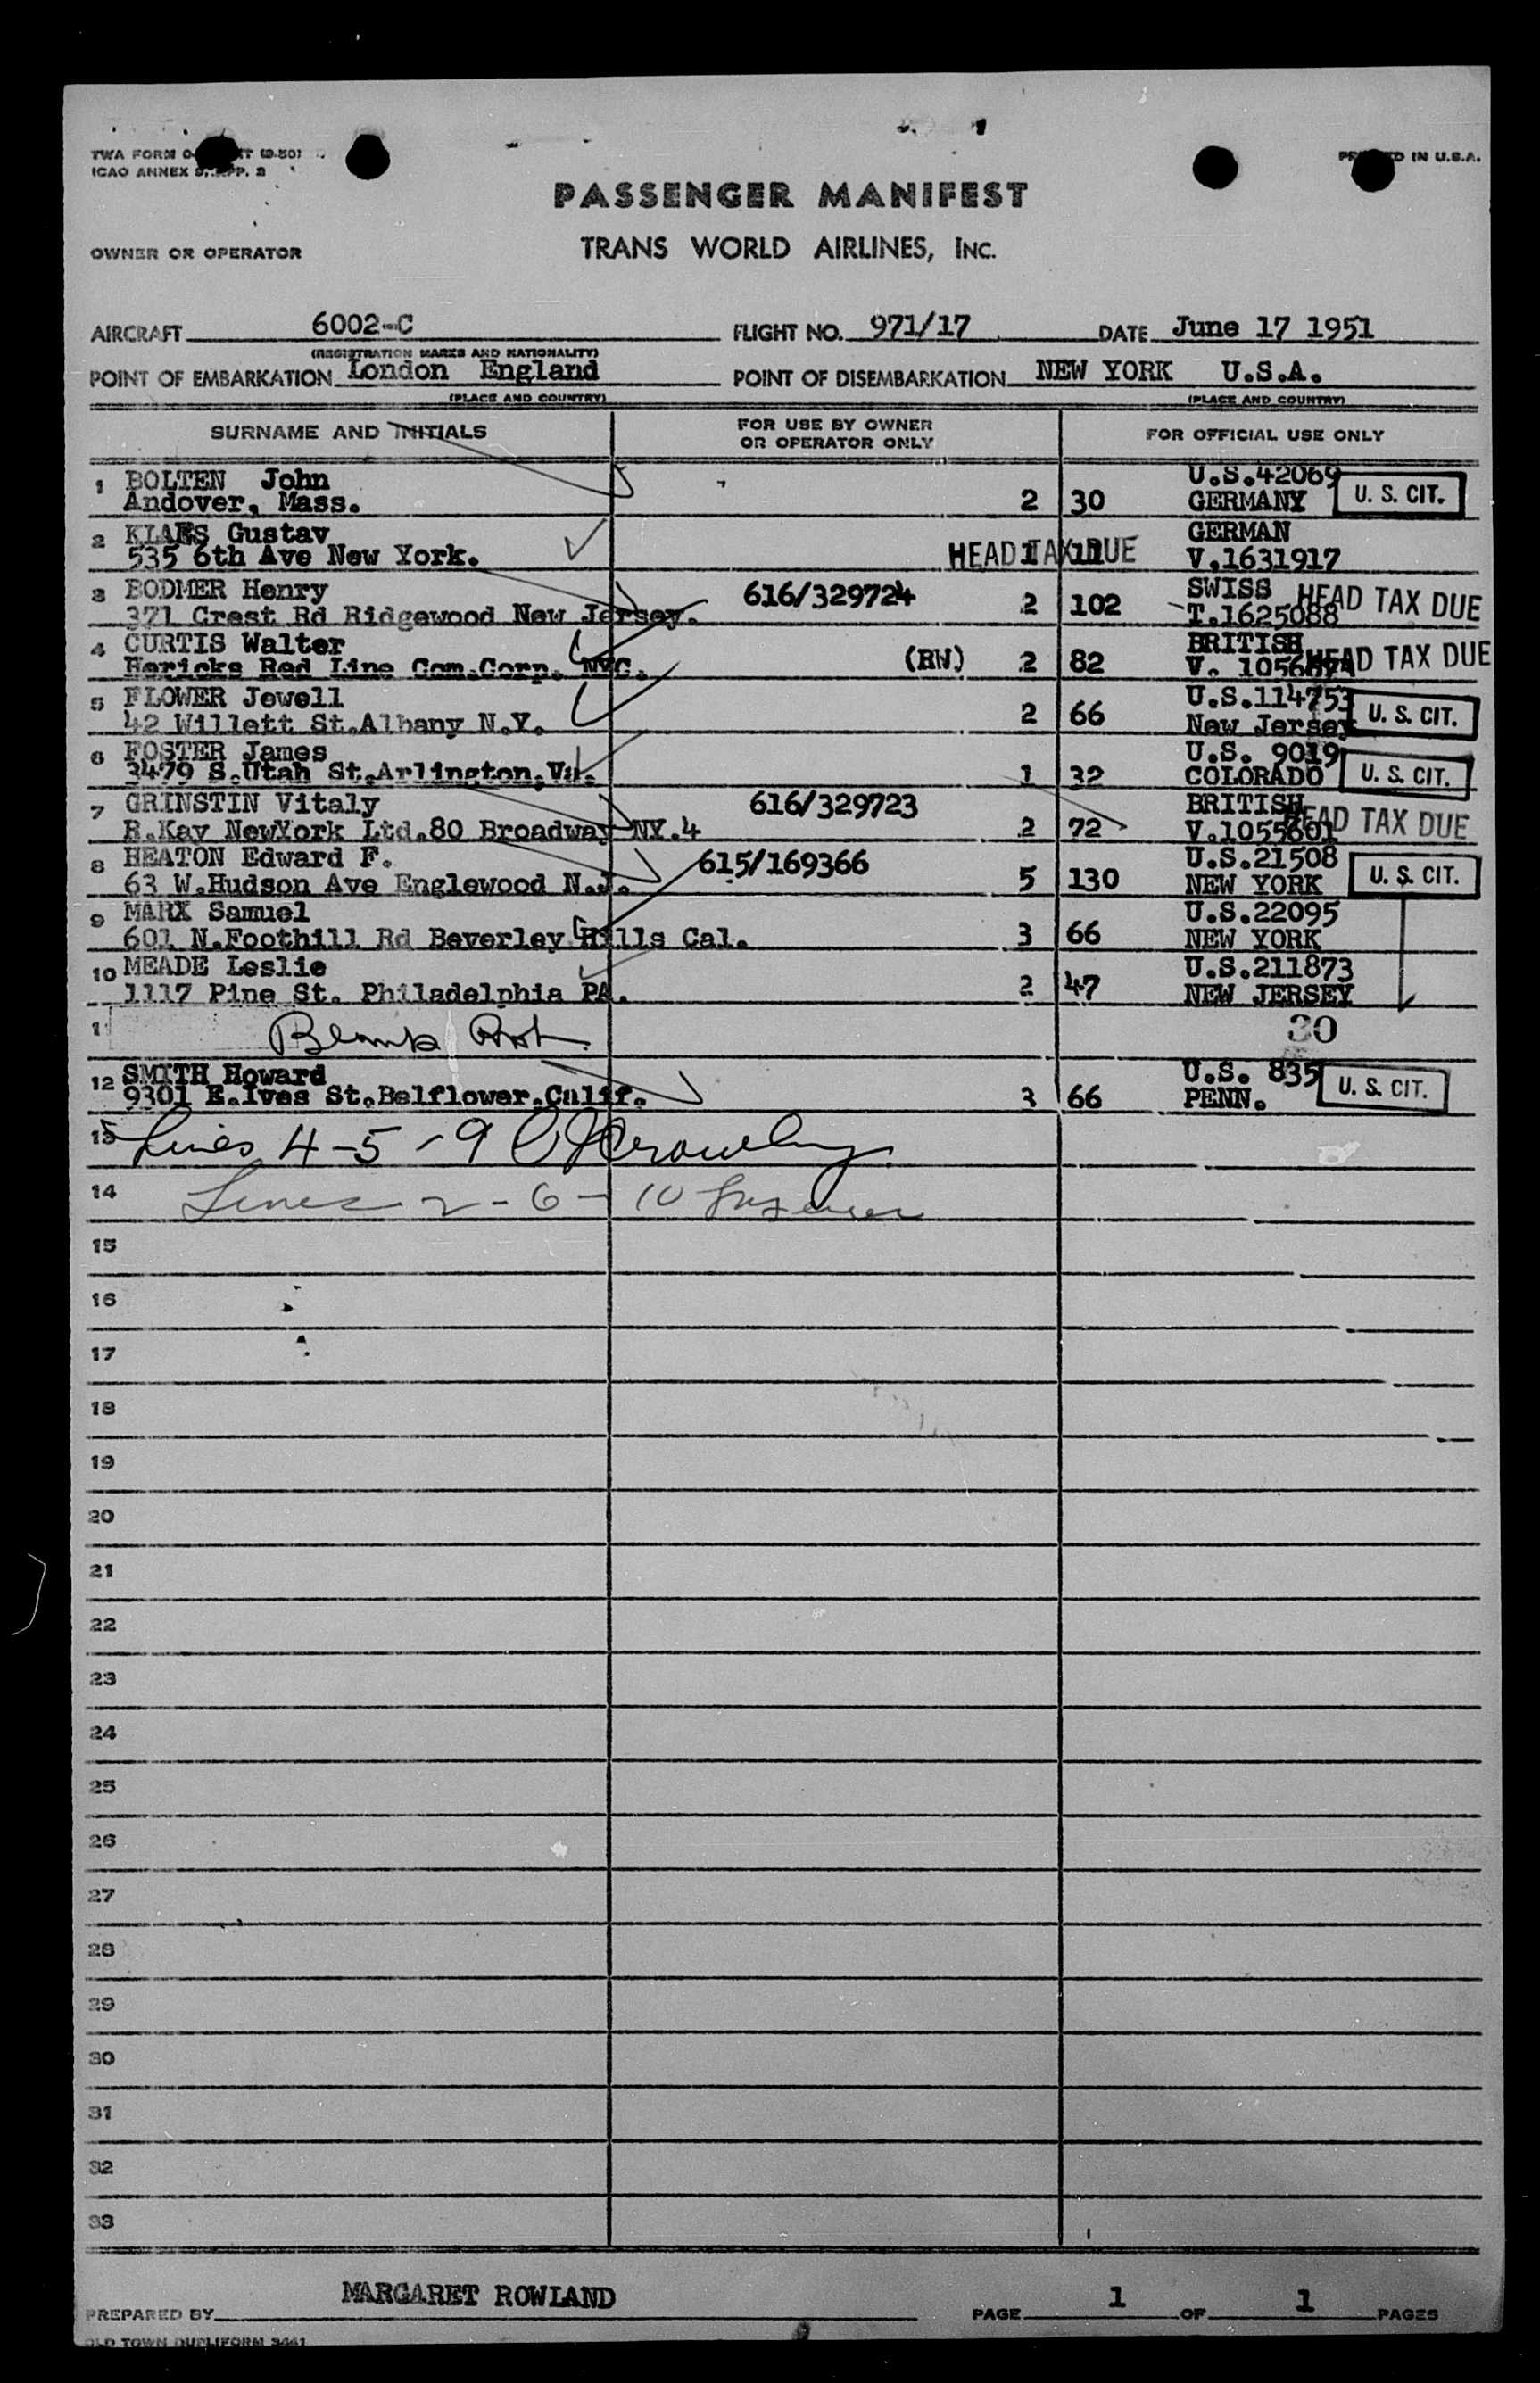 TWA FORM
ICAO ANNEX 9, APP. 2
IN U.S.A.
PASSENGER MANIFEST
OWNER OR OPERATOR
TRANS WORLD AIRLINES, INC.
AIRCRAFT 6002-C FLIGHT NO. 971/17 DATE June 17 1951
(REGISTRATION MARKS AND NATIONALITY)
POINT OF EMBARKATION London England POINT OF DISEMBARKATION NEW YORK U.S.A.
(PLACE AND COUNTRY) (PLACE AND COUNTRY)
SURNAME AND INITIALS FOR USE BY OWNER OR OPERATOR ONLY FOR OFFICIAL USE ONLY
1 BOLTEN John U.S.42069
Andover, Mass. 2 30 GERMANY U. S. CIT.
2 KLAES Gustav GERMAN
535 6th Ave New York. HEAD TAX DUE 1 11 V.1631917
3 BODMER Henry 616/329724 SWISS HEAD TAX DUE
371 Crest Rd Ridgewood New Jersey. 2 102 T.1625088
4 CURTIS Walter BRITISH HEAD TAX DUE
Red Line Com.Corp. NYC. (BW) 2 82 V.
5 FLOWER Jewell U.S.114753
42 Willett St.Albany N.Y. 2 66 New Jersey U. S. CIT.
6 FOSTER James U.S. 9019
3479 S.Utah St.Arlington,Va. 1 32 COLORADO U. S. CIT.
7 GRINSTIN Vitaly 616/329723 BRITISH HEAD TAX DUE
R.Kay NewYork Ltd.80 Broadway NY.4 2 72 V.1055601
8 HEATON Edward F. 615/169366 U.S.21508
63 W.Hudson Ave Englewood N.J. 5 130 NEW YORK U. S. CIT.
9 MARX Samuel U.S.22095
601 N.Foothill Rd Beverley Hills Cal. 3 66 NEW YORK
10 MEADE Leslie U.S.211873
1117 Pine St. Philadelphia PA. 2 47 NEW JERSEY
1 Blank 30
12 SMITH Howard U.S. 835
9301 E.Ives St.Belflower.Calif. 3 66 PENN. U. S. CIT.
13 Lines 4-5-9
14 Lines 2-6-10
15
16
17
18
19
20
21
22
23
24
25
26
27
28
29
30
31
32
33
PREPARED BY MARGARET ROWLAND PAGE 1 OF 1 PAGES
OLD TOWN DUPLIFORM 3441